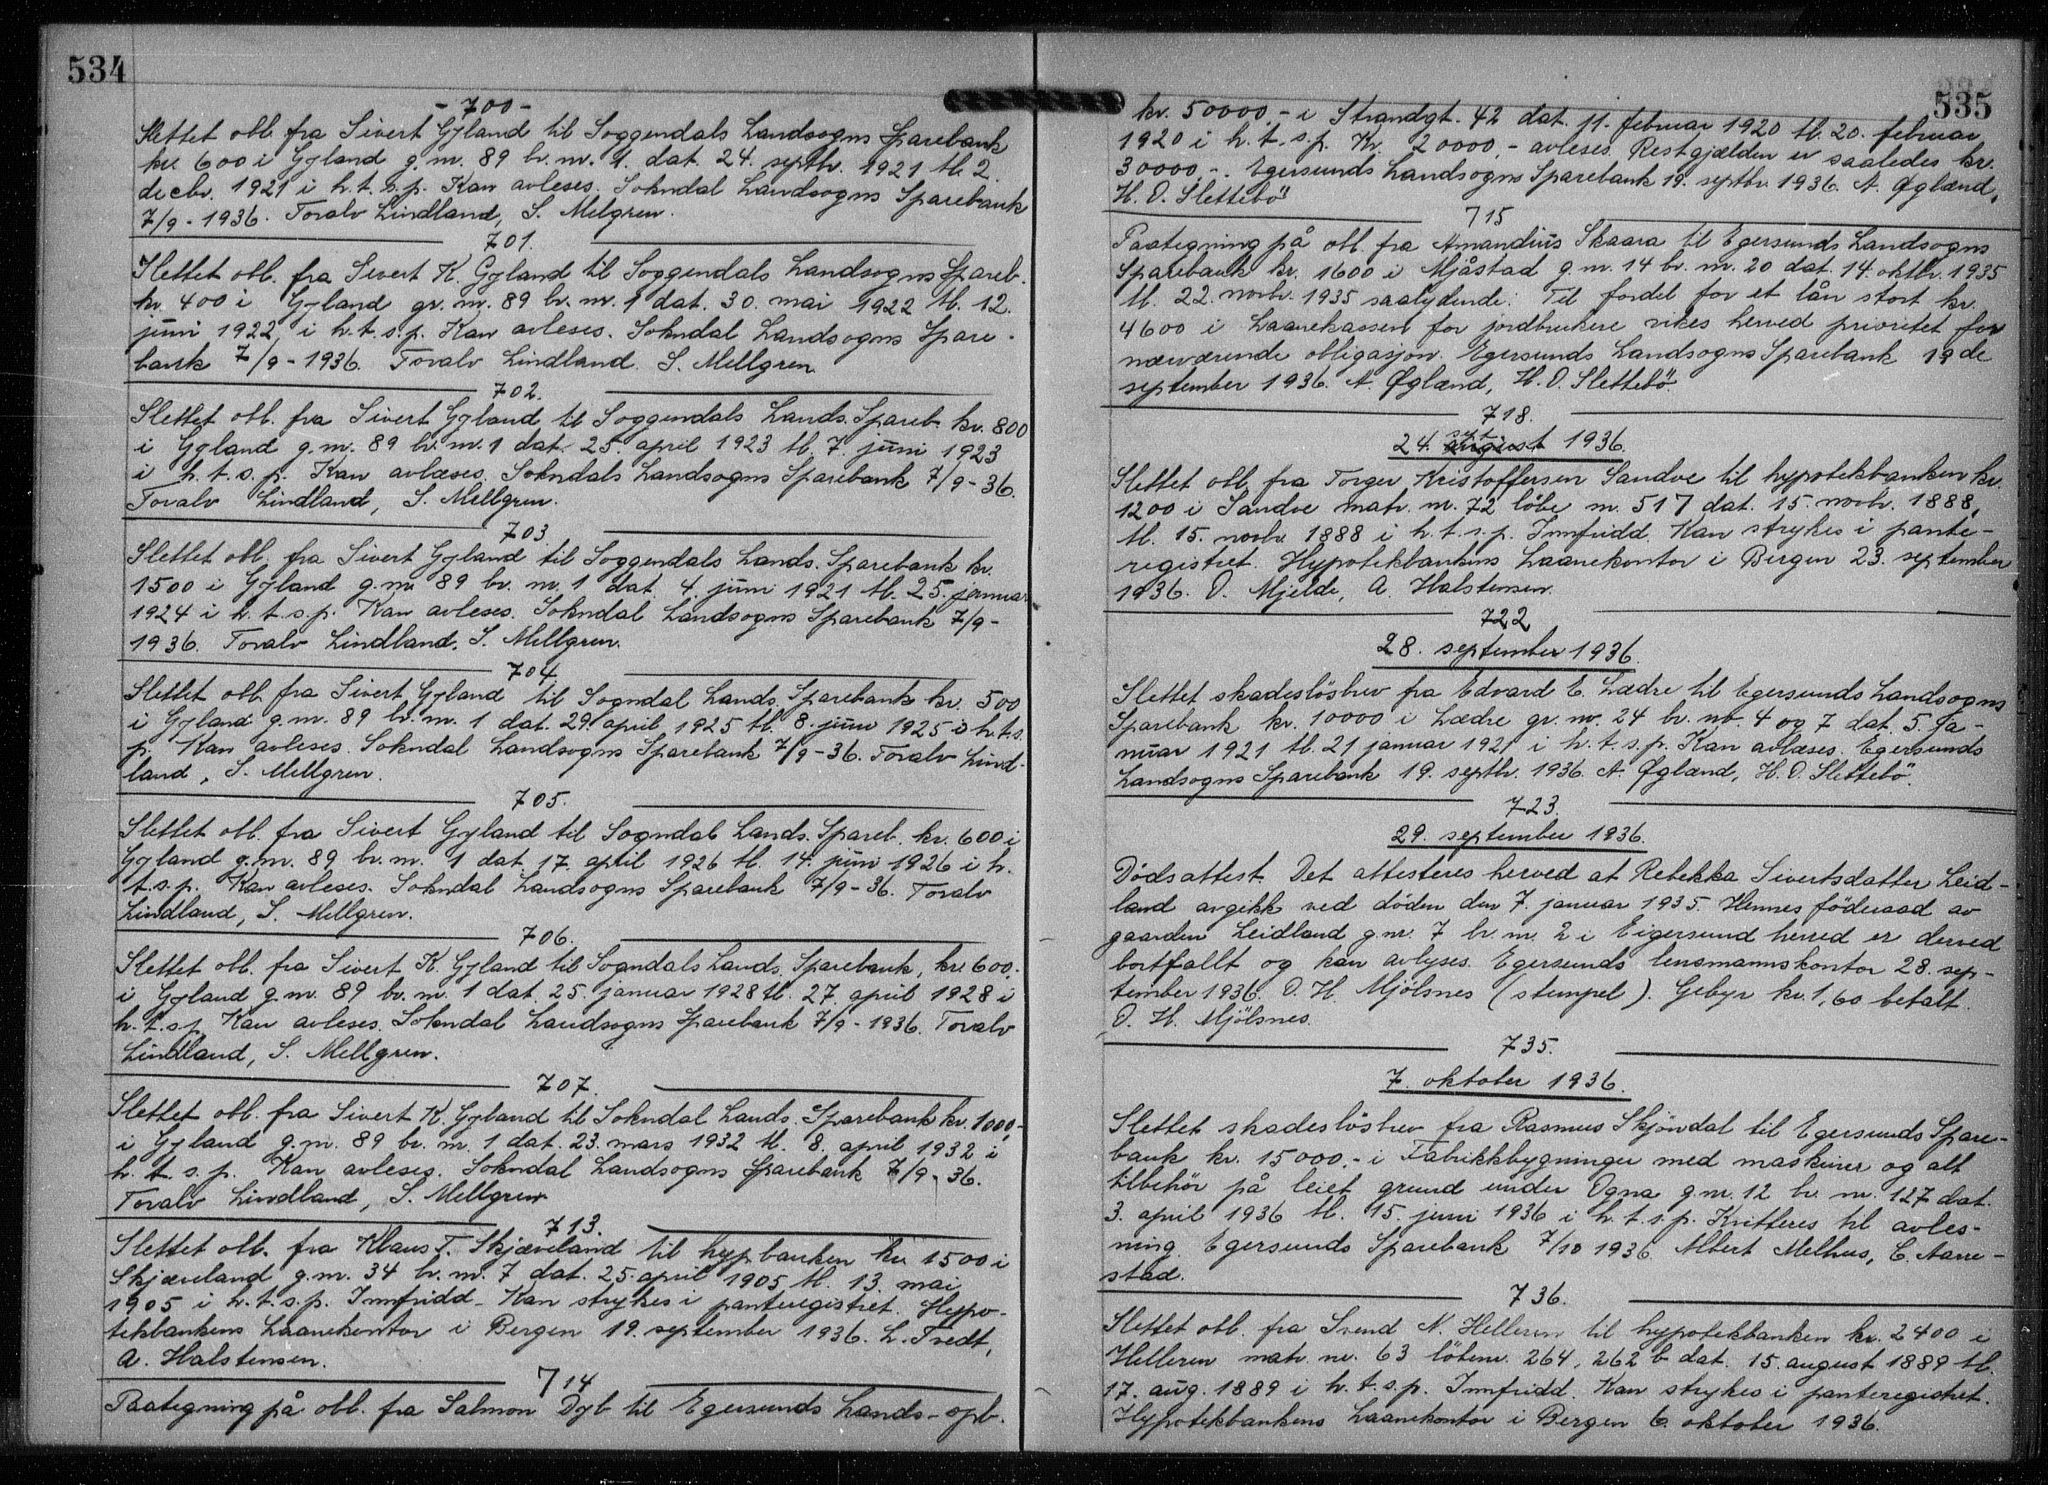 534
- 700 -
Slettet obl. fra Sivert Gyland til Soggendals Landsogns Sparebank
kr. 600 i Gyland g.nr. 89 br.nr. 1. dat. 24. septbr. 1921 tl. 2.
decbr. 1921 i h.t.s.p. Kan avleses. Sokndal Landsogns Sparebank
7/9 - 1936. Toralv Lindland, S. Melgren.
701.
Slettet obl. fra Sivert K. Gyland til Soggendals Landsogns Spareb.
kr. 400 i Gyland gr.nr. 89 br.nr. 1 dat. 30. mai 1922 tl. 12.
juni 1922, i h.t.s.p. Kan avleses. Sokndal Landsogns Spare-
bank 7/9 - 1936. Toralv Lindland. S. Mellgren.
702.
Slettet obl. fra Sivert Gyland til Soggendals Lands. Spareb. kr. 800
i Gyland g.nr. 89 br.nr. 1 dat. 25. april 1923 tl. 7. juni 1923
i h.t.s.p. Kan avlæses. Sokndals Landsogns Sparebank 7/9 - 36.
Toralv Lindland, S. Mellgren.
703.
Slettet obl. fra Sivert Gyland til Soggendals Lands. Sparebank kr.
1500 i Gyland g.nr. 89 br.nr. 1 dat. 4. juni 1921 tl. 25. januar
1924 i h.t.s.p. Kan avleses. Sokndal Landsogns Sparebank 7/9 -
1936. Toralv Lindland. S. Mellgren.
704.
Slettet obl. fra Sivert Gyland til Sogndal Lands. Sparebank kr. 500
i Gyland g.nr. 89 br.nr. 1 dat. 29. april 1925 tl. 8. juni 1925 i h.t.s.
p. Kan avleses. Sokndal Landsogns Sparebank 7/9 - 36. Toralv Lind-
land, S. Mellgren.
705.
Slettet obl. fra Sivert Gyland til Sogndal Lands. Spareb. kr. 600 i
Gyland g.nr. 89 br.nr. 1 dat. 17. april 1926 tl. 14. juni 1926 i h.
t.s.p. Kan avleses. Sokndal Landsogns Sparebank 7/9 - 36. Toralv
Lindland, S. Mellgren.
706.
Slettet obl. fra Sivert K. Gyland til Sogndals Lands. Sparebank, kr. 600.
i Gyland g.nr. 89 br.nr. 1 dat. 25. januar 1928 tl. 27. april 1928 i
h.t.s.p. Kan avleses. Sokndal Landsogns Sparebank 7/9 - 1936. Toralv
Lindland, S. Mellgren.
707.
Slettet obl. fra Sivert K. Gyland til Sokndal Lands. Sparebank kr. 1000.-
i Gyland g.nr. 89 br.nr. 1 dat. 23. mars 1932 tl. 8. april 1932 i
h.t.s.p. Kan avleses. Sokndal Landsogns Sparebank 7/9 - 36.
Toralv Lindland, S. Mellgren
713.
Slettet obl. fra Klaus T. Skjæveland til hyp.banken kr. 1500 i
Skjæveland g.nr. 34 br.nr. 7 dat. 25. april 1905 tl. 13. mai
1905 i h.t.s.p. Innfridd - Kan strykes i panteregistret. Hypo-
tekbankens Laanekontor i Bergen 19. september 1936. L. Tredt,
A. Halstensen.
714
Paategning på obl. fra Salmon Dyb til Egersunds Lands - spb.
535
kr. 50000.- i Strandgt. 42 dat. 11. februar 1920 tl. 20. februar
1920 i h.t.s.p. Kr. 20000.- avleses. Restgjælden er saaledes kr.
30000.-. Egersunds Landsogns Sparebank 19. septbr. 1936. A. Øglænd,
H. O. Slettebö
715
Paategning på obl. fra Amandius Skaara til Egersunds Landsogns
Sparebank kr. 1600 i Mjåstad g.nr. 14 br.nr. 20 dat. 14. oktbr. 1935
tl. 22. novbr. 1935 saalydende: Til fordel for et lån stort kr.
4600 i Laanekassen for jordbrukere vikes herved prioritet for
nærværende obligasjon. Egersunds Landsogns Sparebank 19de
september 1936. A. Øglænd, H. O. Slettebö.
718.
24. august sept. 1936.
Slettet obl. fra Torger Kristoffersen Sandve til hypotekbanken kr.
1200 i Sandve matr. nr. 72 löbe nr. 517 dat. 15. novbr. 1888,
tl. 15. novbr. 1888 i h.t.s.p. Innfridd. Kan strykes i pante-
registret. Hypotekbankens Laanekontor i Bergen 23. september
1936. O. Mjelde, A. Halstensen.
722
28. september 1936.
Slettet skadeslösbrev fra Edvard E. Lædre til Egersunds Landsogns
Sparebank kr. 10000 i Lædre gr.nr. 24 br. nr. 4 og 7 dat. 5. ja-
nuar 1921 tl. 21 januar 1921 i h.t.s.p. Kan avlæses. Egersunds
Landsogns Sparebank 19. septbr. 1936. A. Øglænd, H. O. Slettebö.
723.
29. september 1936.
Dödsattest. Det attesteres herved at Rebekka Sivertsdatter Leid-
land avgikk ved döden den 7. januar 1935. Hennes föderaad av
gaarden Leidland g.nr. 7 br.nr. 2 i Eigersund herred er derved
bortfallt og kan avlyses. Egersunds lensmannskontor 28. sep-
tember 1936. O. H. Mjölsnes (stempel). Gebyr kr. 1,60 betalt.
O. H. Mjölsnes.
735.
7. oktober 1936.
Slettet skadeslösbrev fra Rasmus Skjöndal til Egersunds Spare-
bank kr. 15000.- i Fabrikkbygninger med maskiner og alt
tilbehör på leiet grund under Ogna g.nr. 12 br. nr. 127 dat.
3. april 1936 tl. 15. juni 1936 i h.t.s.p. Kvitteres til avles-
ning. Egersunds Sparebank 7/10 1936. Albert Melhus, C. Aarre-
stad.
736.
Slettet obl. fra Svend N. Helleren til hypotekbanken kr. 2400 i
Helleren matr. nr. 63 löbenr. 264, 262 b dat. 15. august 1889 tl.
17. aug. 1889 i h.t.s.p. Innfridd. Kan strykes i panteregistret.
Hypotekbankens Laanekontor i Bergen 6. oktober 1936.